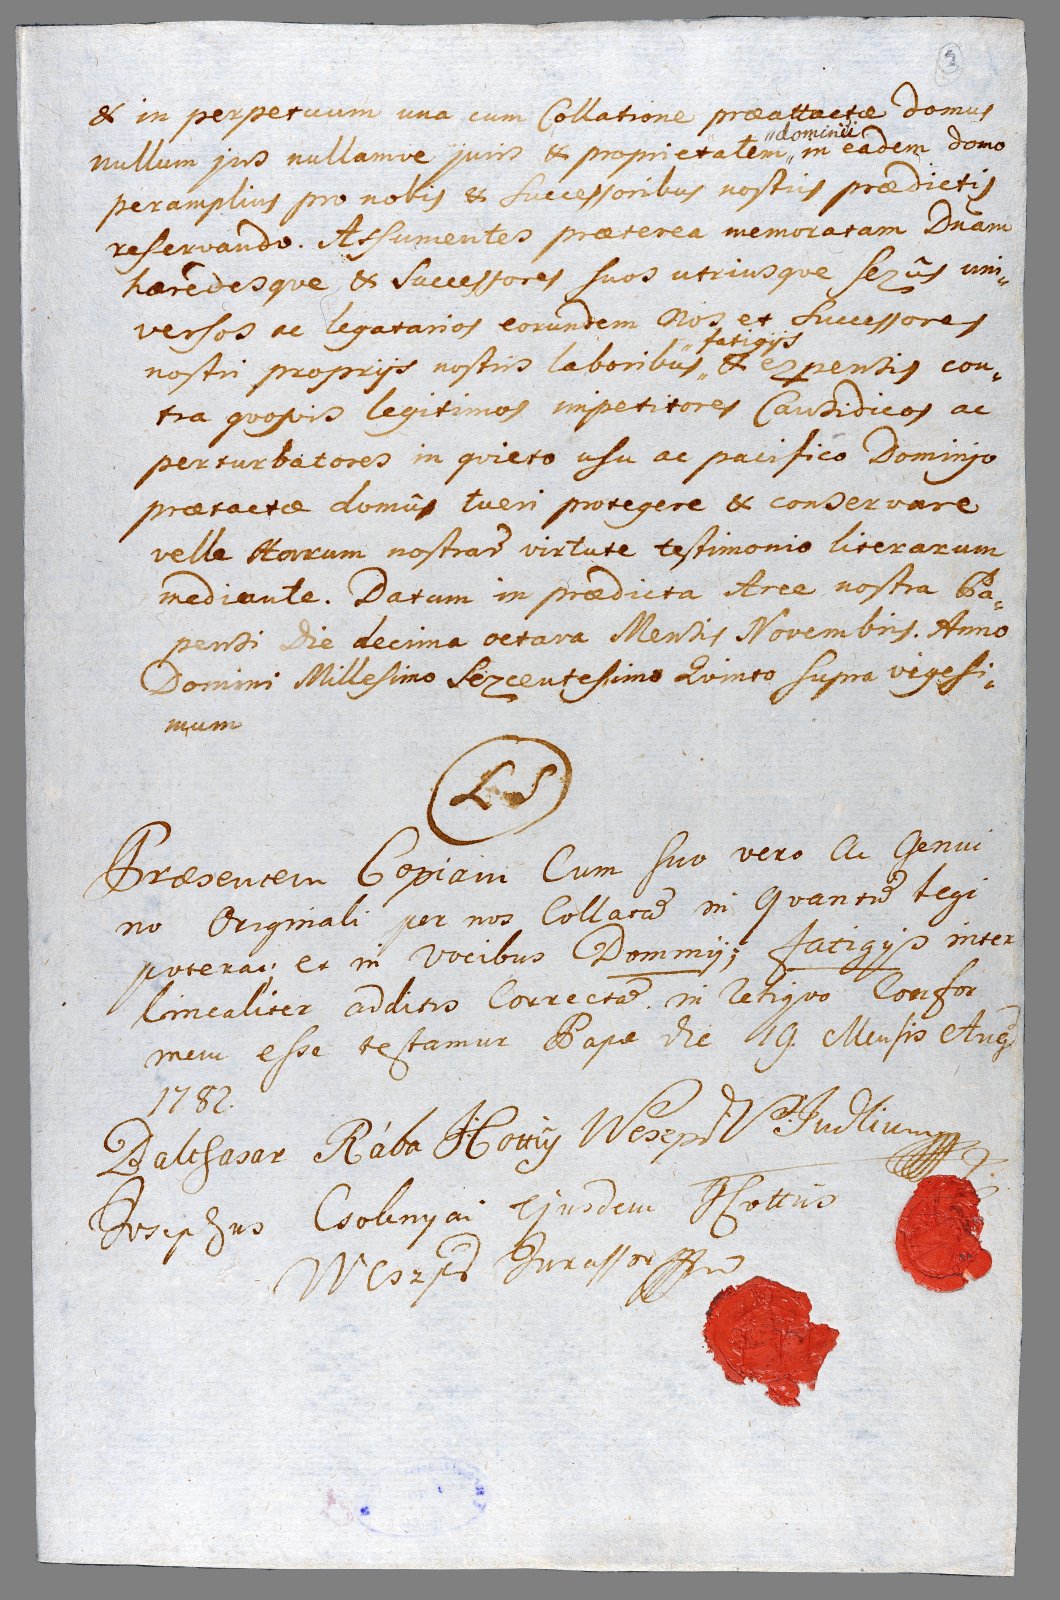 3
& in perpetuum una cum Collatione præattactæ domus
nullum jus nullamve juris & proprietatem „dominii„ in eadem domo
peramplius pro nobis & Successoribus nostris prædictis
reservando. Assumentes præterea memoratam Dnam
hæredesque & Successores suos utriusque Sexûs uni„
versos ac legatarios eorundem Nos et Successores
nostri proprijs nostris laboribus „fatigijs„ & expensis con„
tra quosvis legitimos impetitores Causidicos ac
perturbatores in quieto usu ac pacifico Dominjo
prætactæ domûs tueri protegere & conservare
velle Harum nostrar virtute testimonio literarum
mediante. Datum in prædicta Arce nostra Pa„
pensi die decima octava Mensis Novembris. Anno
Domini Millesimo Sexcentessimo Quinto supra vigessi„
mum
L S
Præsentem Copiam Cum suo vero Ac Genui
no Originali per nos Collatã in Quantũ legi
poterat, et in Vocibus Dominij; fatigijs inter
linealiter additis Correctã in retiquo Confor
mem esse testamur Papæ die 19. Mensis Aug
1782.
Balthasar Rába I: Cottûs Weszpr V. Judlium
Josephus Csolnyai ejusdem I Cottus
Weszpr Jurassor